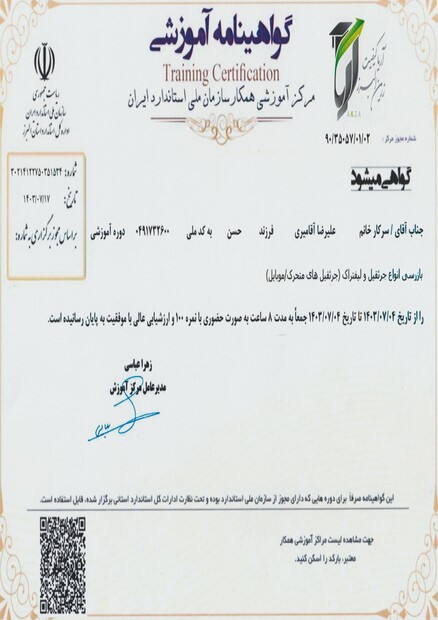 گواهینامه آموزشی
Training Certification
مرکز آموزشی همکار سازمان ملی استاندارد ایران
ریاست جمهوری
سازمان ملی استاندارد ایران
اداره کل استاندارد استان البرز
آریا کیفیت
A.K.Z.A
شماره مجوز مرکز: ۹۰/۳۵۰۵۷/۰۱/۰۲
شماره: ۳۰۲۱۴۱۲۲۷۵۰۲۵۱۵۳۴
تاریخ: ۱۴۰۳/۰۷/۱۷
براساس مجوز برگزاری به شماره:
گواهی میشود
جناب آقای / سرکار خانم علیرضا آقامیری فرزند حسن به کد ملی ۰۴۹۱۷۳۲۶۰۰ دوره آموزشی
بازرسی انواع جرثقیل و لیفتراک (جرثقیل های متحرک/موبایل)
را از تاریخ ۱۴۰۳/۰۷/۰۴ تا تاریخ ۱۴۰۳/۰۷/۰۴ جمعاً به مدت ۸ ساعت به صورت حضوری با نمره ۱۰۰ و ارزشیابی عالی با موفقیت به پایان رسانیده است.
زهرا عباسی
مدیرعامل مرکز آموزش
این گواهینامه صرفاً برای دوره هایی که دارای مجوز از سازمان ملی استاندارد بوده و تحت نظارت ادارات کل استاندارد استانی برگزار شده، قابل استفاده است.
جهت مشاهده لیست مراکز آموزشی همکار
معتبر، بارکد را اسکن کنید.